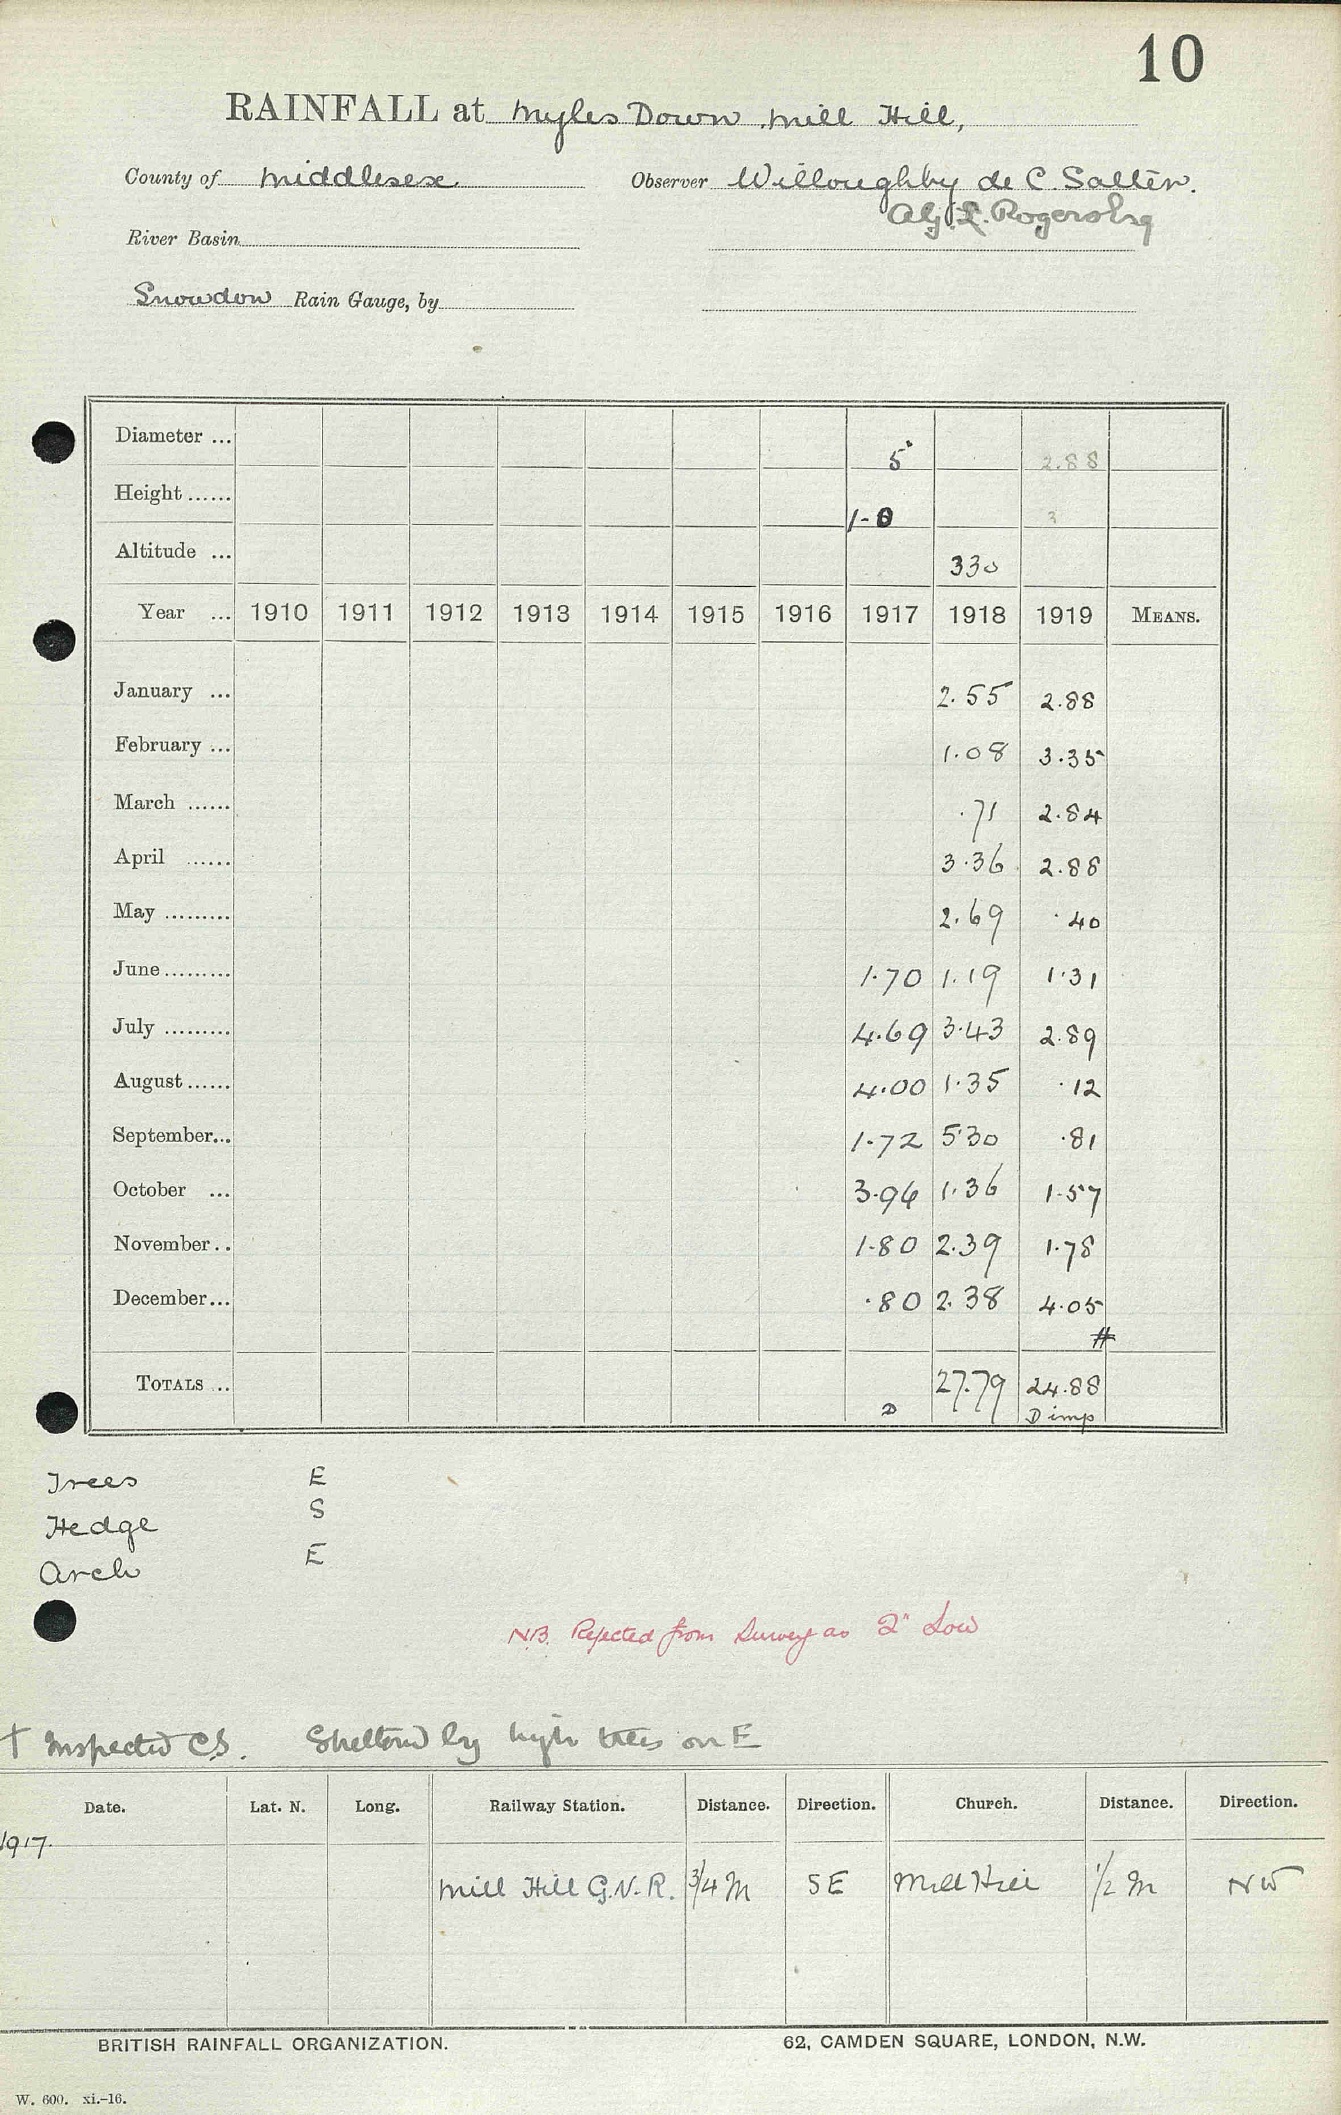 10
RAINFALL at Myles Down Mill Hill,
County of Middlesex Observer Willoughby de C. Salter.
L. Rogers Esq
River Basin
Snowdon Rain Gauge, by
Diameter ... 5" 2.88
Height ...... 1-0 3
Altitude ... 330
Year ... 1910 1911 1912 1913 1914 1915 1916 1917 1918 1919 MEANS.
January ... 2.55 2.88
February ... 1.08 3.35
March ...... .71 2.84
April ...... 3.36 2.88
May ......... 2.69 .40
June ......... 1.70 1.19 1.31
July ......... 4.69 3.43 2.89
August ...... 4.00 1.35 .12
September... 1.72 5.30 .81
October ... 3.96 1.36 1.57
November .. 1.80 2.39 1.78
December... .80 2.38 4.05
#
TOTALS .. 27.79 24.88
D D imp
Trees E
Hedge S
Arch E
N.B. Rejected from Survey as 2" Low
† Inspected C.S. Sheltered by high trees on E
Date. Lat. N. Long. Railway Station. Distance. Direction. Church. Distance. Direction.
1917.
Mill Hill G.N.R. 3/4 M SE Mill Hill 1/2 M NW
BRITISH RAINFALL ORGANIZATION. 62, CAMDEN SQUARE, LONDON, N.W.
W. 600. xi.-16.